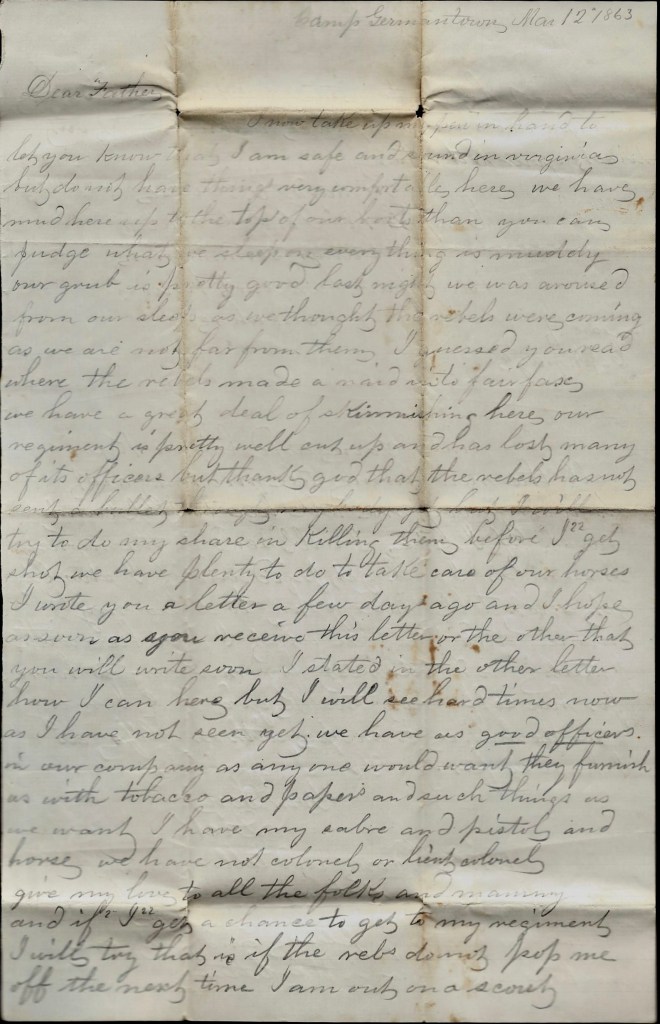 Camp Germantown, Mar 12th 1863
Dear Father
I now take up my pen in hand to
let you know that I am safe and sound in virginia
but do not have things very comfortable here we have
mud here up to the top of our boots than you can
judge what we sleep on everything is muddy
our grub is pretty good last night we was aroused
from our sleep as we thought the rebels were coming
as we are not far from them I guessed you read
where the rebels made a raid into fairfax
we have a great deal of skirmishing here our
regiment is pretty well cut up and has lost many
of its officers but thank god that the rebels has not
sent a bullet through my body yet but I will
try to do my share in Killing them before I get
shot we have plenty to do to take care of our horses
I wrote you a letter a few day ago and I hope
as soon as you receive this letter or the other that
you will write soon I stated in the other letter
how I can here but I will see hard times now
as I have not seen yet. we have as good officers.
in our company as any one would want they furnish
us with tobacco and papers and such things as
we want I have my sabre and pistol and
horse we have not colonel or lieut colonel
give my love to all the folks and mammy
and if I get a chance to get to my regiment
I will try that is if the rebs do not pop me
off the next time I am out on a scout